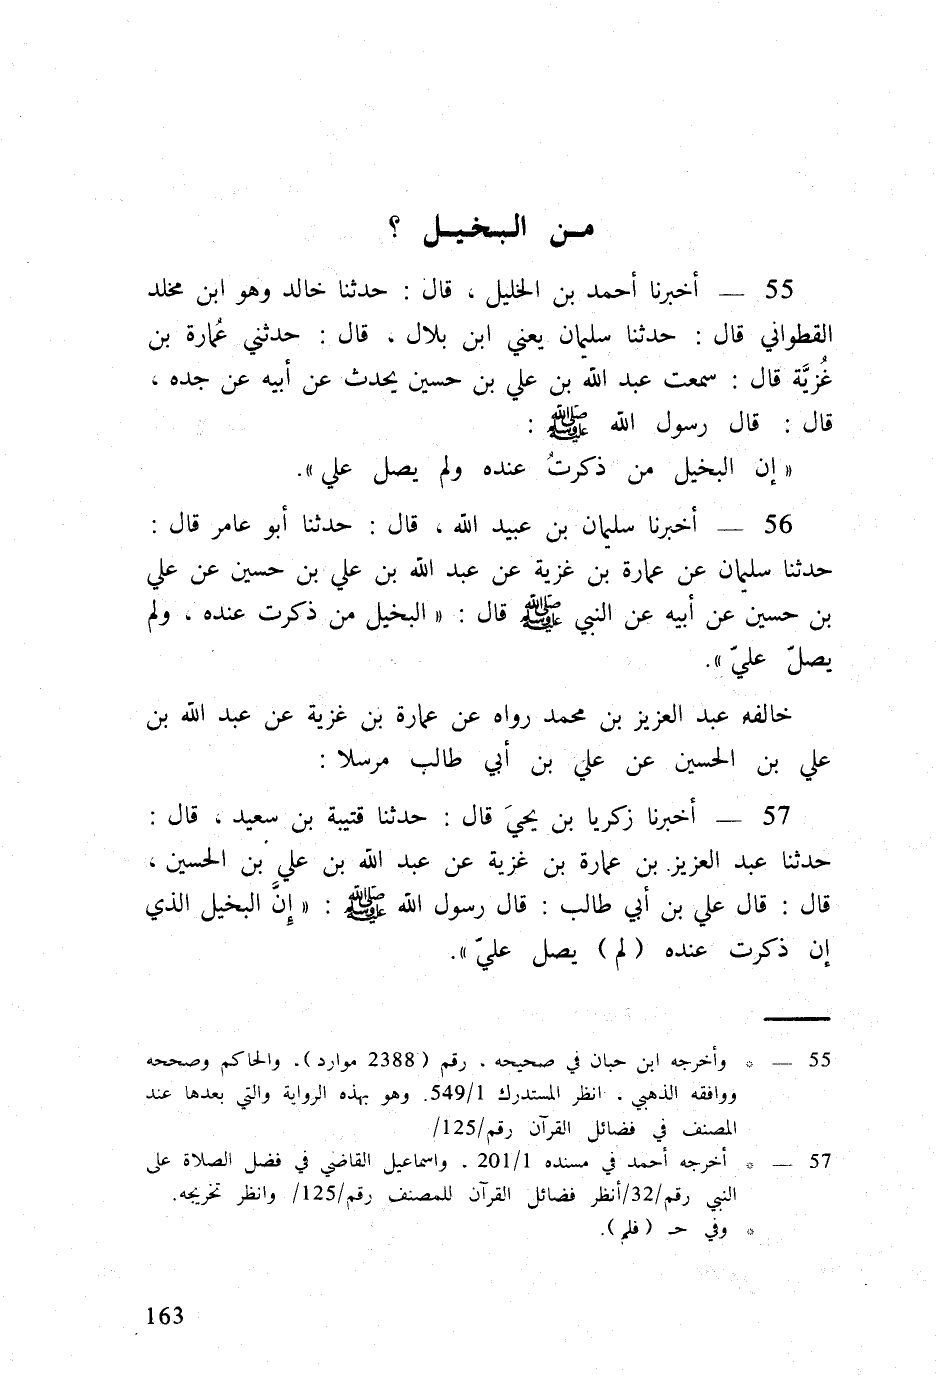 من البخيل ؟
55 — أخبرنا أحمد بن الخليل ، قال : حدثنا خالد وهو ابن مخلد
القطواني قال : حدثنا سليمان يعني ابن بلال ، قال : حدثني عُمارة بن
غُزيَّة قال : سمعت عبد الله بن علي بن حسين يحدث عن أبيه عن جده ،
قال : قال رسول الله ﷺ :
« إن البخيل من ذكرتُ عنده ولم يصل علي ».
56 — أخبرنا سليمان بن عبيد الله ، قال : حدثنا أبو عامر قال :
حدثنا سليمان عن عمارة بن غزية عن عبد الله بن علي بن حسين عن علي
بن حسين عن أبيه عن النبي ﷺ قال : « البخيل من ذكرت عنده ، ولم
يصلّ عليّ ».
خالفه عبد العزيز بن محمد رواه عن عمارة بن غزية عن عبد الله بن
علي بن الحسين عن علي بن أبي طالب مرسلا :
57 — أخبرنا زكريا بن يحيَ قال : حدثنا قتيبة بن سعيد ، قال :
حدثنا عبد العزيز بن عمارة بن غزية عن عبد الله بن علي بن الحسين ،
قال : قال علي بن أبي طالب : قال رسول الله ﷺ : « إِنَّ البخيل الذي
إن ذكرت عنده ( لم ) يصل عليّ ».
55 — * وأخرجه ابن حبان في صحيحه ، رقم ( 2388 موارد ). والحاكم وصححه
ووافقه الذهبي ، انظر المستدرك 549/1. وهو بهذه الرواية والتي بعدها عند
المصنف في فضائل القرآن رقم/125/
57 — * أخرجه أحمد في مسنده 201/1 ، واسماعيل القاضي في فضل الصلاة على
النبي رقم/32/أنظر فضائل القرآن للمصنف رقم/125/ وانظر تخريجه.
* وفي حـ ( فلم ).
163